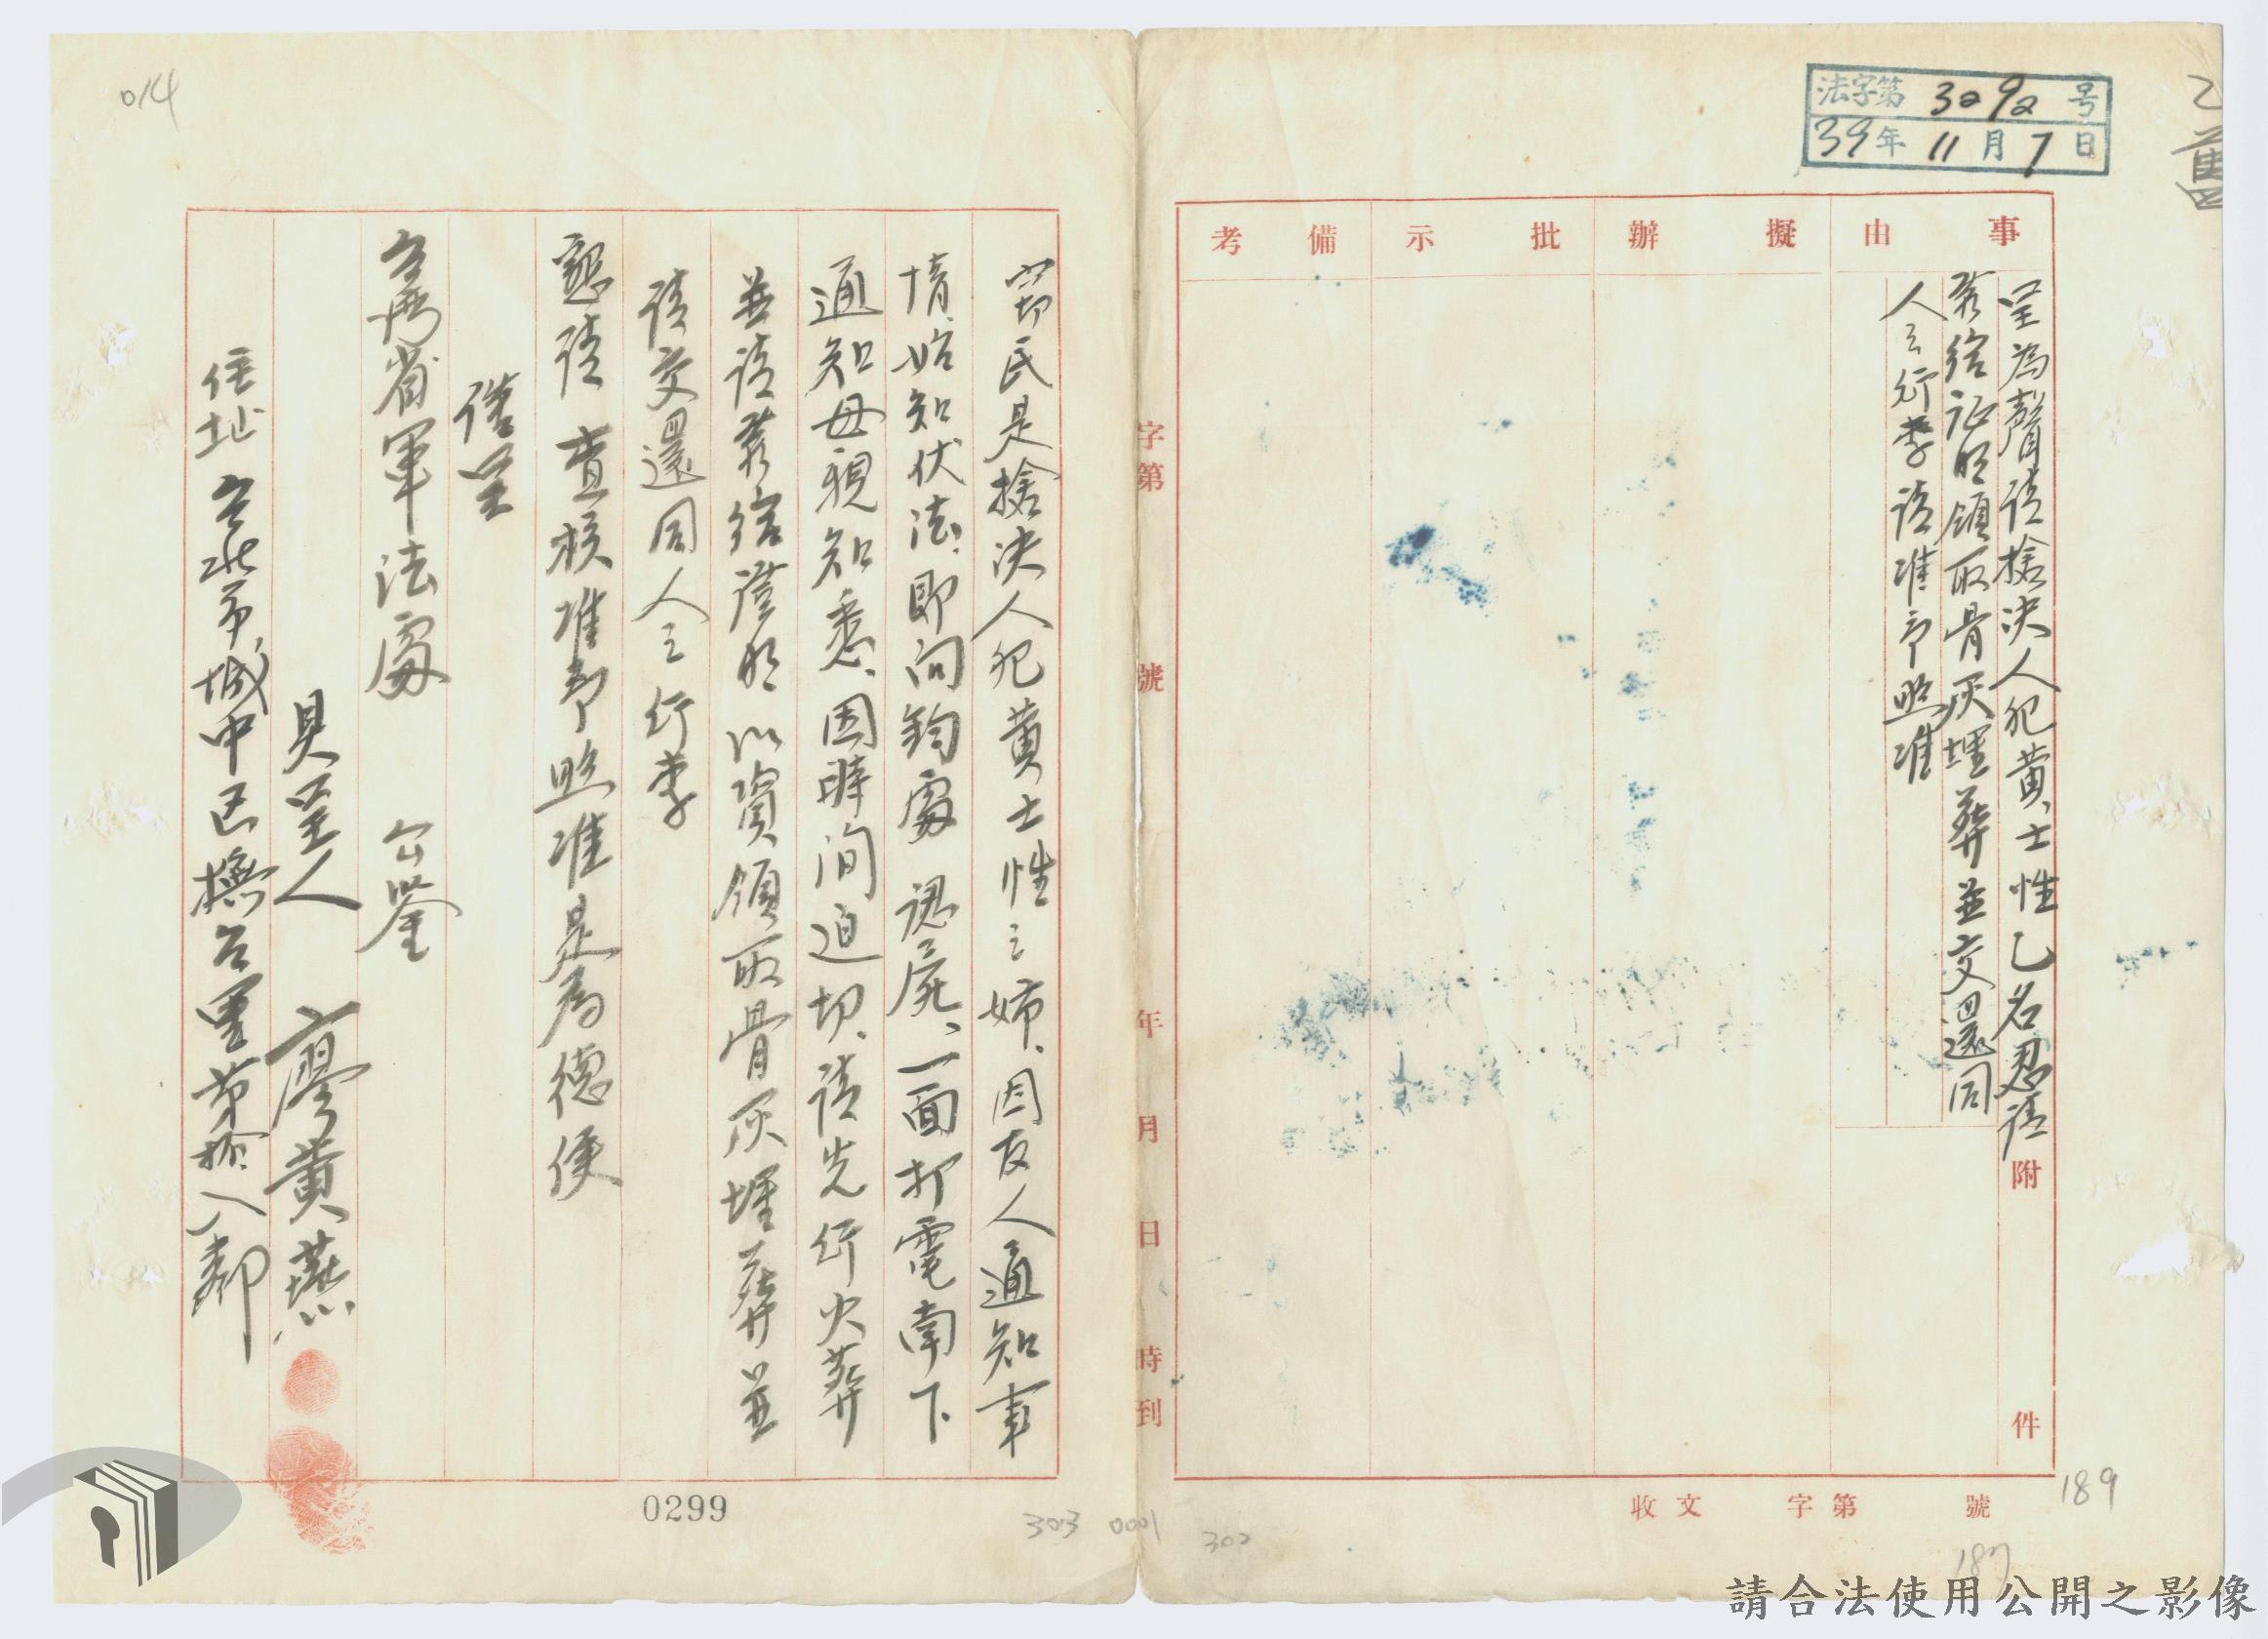 014
乙
舊
法字第 3292 号
39年 11月7日
事由
擬辦
批示
備考
呈為聲請搶決人犯黃士性乙名忍請
發給証明領取骨灰埋葬並交還同
人之行李請准予照准
附件
收文 字第 號
字第 號 年 月 日 時到
竊民是搶決人犯黃士性之姉、因友人通知事
情、始知伏法、即向鈞處 認屍、一面打電南下
通知母親知悉、因時间迫切、請先行火葬
並請發給證明以資領取骨灰埋葬並
請交還同人之行李
懇請 查核准予照准是為德便
謹呈
台灣省軍法處 公鑒
具呈人 廖黃燕
住址 台北市城中区撫台里第拾八鄰
0299
303 0001
302
189
187
請合法使用公開之影像